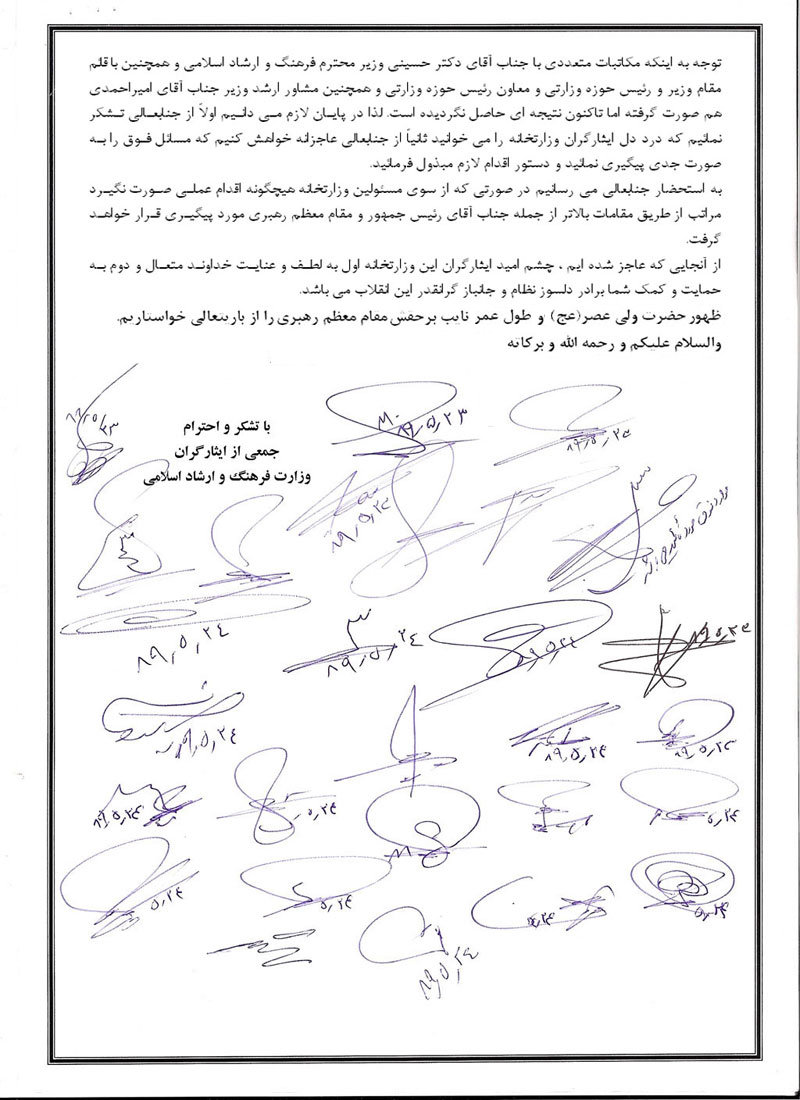 توجه به اینکه مکاتبات متعددی با جناب آقای دکتر حسینی وزیر محترم فرهنگ و ارشاد اسلامی و همچنین باقائم
مقام وزیر و رئیس حوزه وزارتی و معاون رئیس حوزه وزارتی و همچنین مشاور ارشد وزیر جناب آقای امیراحمدی
هم صورت گرفته اما تاکنون نتیجه ای حاصل نگردیده است. لذا در پایان لازم می دانیم اولاً از جنابعالی تشکر
نمائیم که درد دل ایثارگران وزارتخانه را می خوانید ثانیاً از جنابعالی عاجزانه خواهش کنیم که مسائل فوق را به
صورت جدی پیگیری نمائید و دستور اقدام لازم مبذول فرمائید.
به استحضار جنابعالی می رسانیم در صورتی که از سوی مسئولین وزارتخانه هیچگونه اقدام عملی صورت نگیرد
مراتب از طریق مقامات بالاتر از جمله جناب آقای رئیس جمهور و مقام معظم رهبری مورد پیگیری قرار خواهد
گرفت.
از آنجایی که عاجز شده ایم ، چشم امید ایثارگران این وزارتخانه اول به لطف و عنایت خداوند متعال و دوم به
حمایت و کمک شما برادر دلسوز نظام و جانباز گرانقدر این انقلاب می باشد.
ظهور حضرت ولی عصر(عج) و طول عمر نایب برحقش مقام معظم رهبری را از باریتعالی خواستاریم.
والسلام علیکم و رحمه الله و برکاته
با تشکر و احترام
جمعی از ایثارگران
وزارت فرهنگ و ارشاد اسلامی
۸۹,۵,۲۳
۸۹,۵,۲۴
۸۹,۵,۲۴
۸۹,۵,۲۴
۸۹,۵,۲۴
۸۹,۵,۲۴
۸۹,۵,۲۴
۸۹,۵,۲۴
۸۹,۵,۲۴
۵,۲۴
۵,۲۴
۵,۲۴
۵,۲۴
۸۹,۵,۲۴